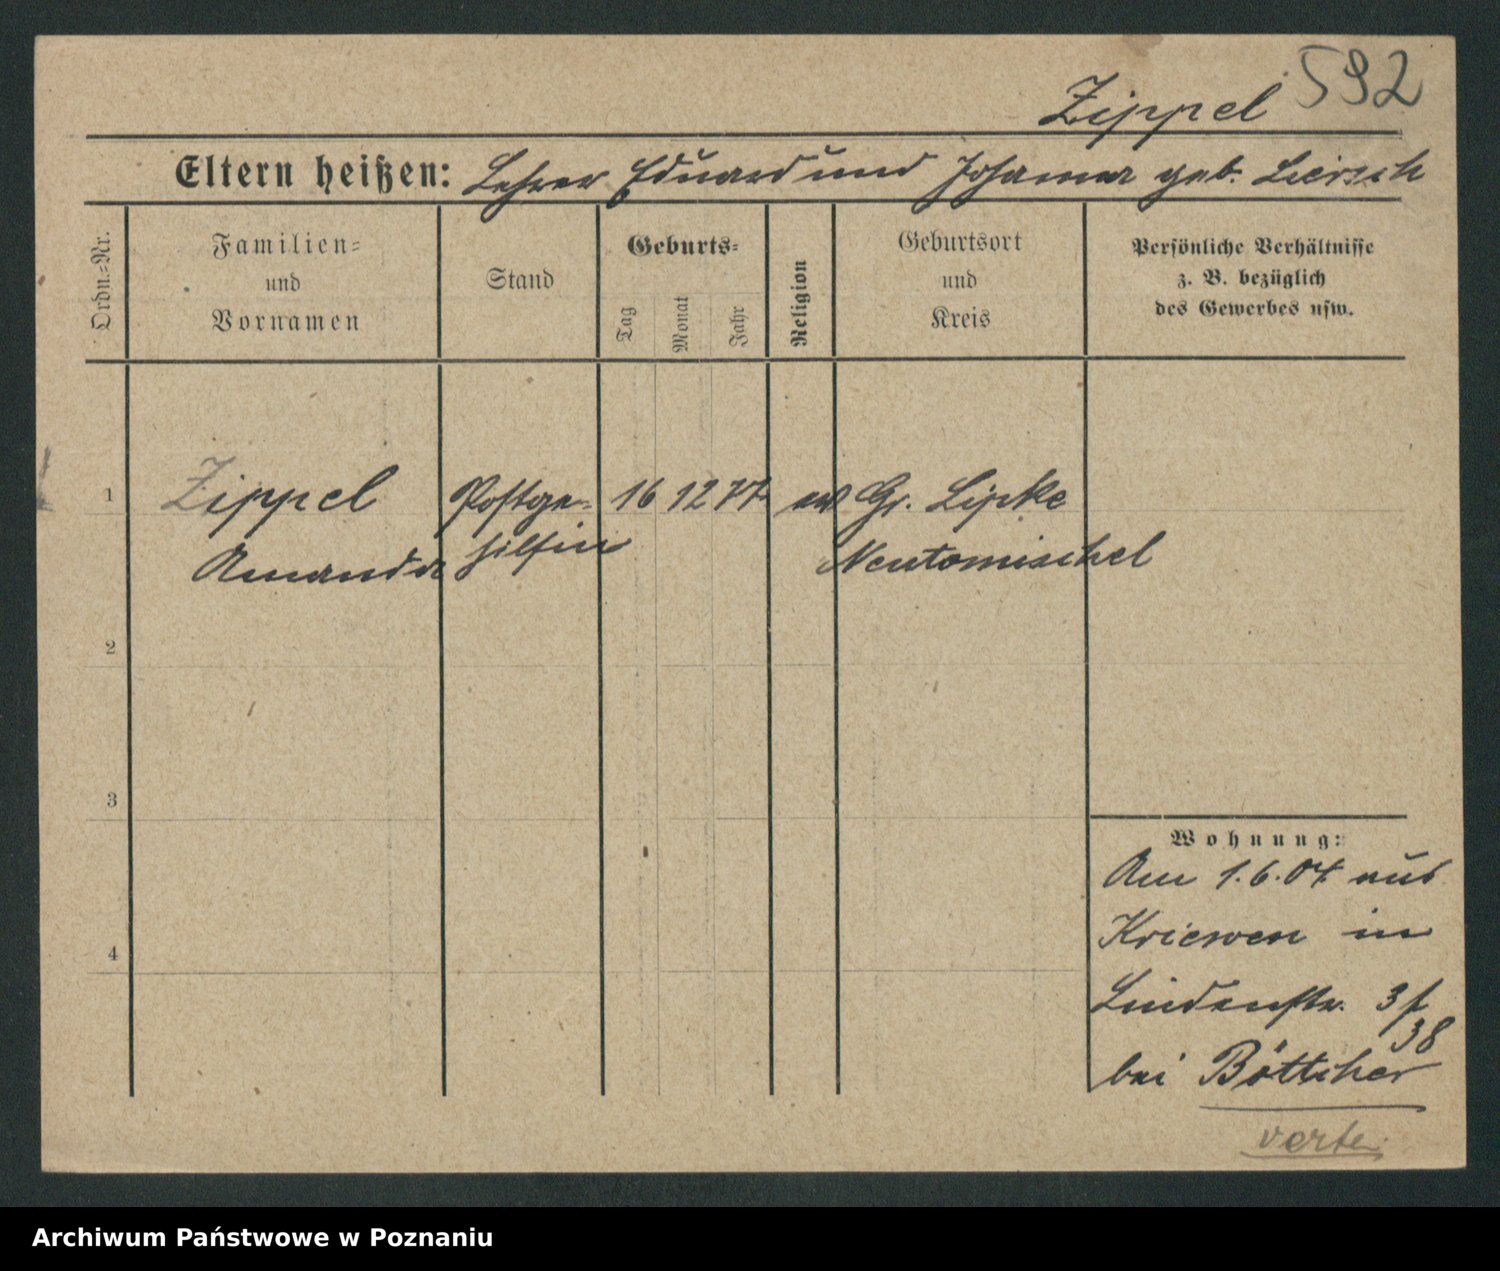 592
Zippel
Eltern heißen: Lehrer Eduard und Johanna geb. Liersch
Ordn.=Nr.
Familien=
und
Vornamen
Stand
Geburts=
Tag
Monat
Jahr
Religion
Geburtsort
und
Kreis
Persönliche Verhältnisse
z. B. bezüglich
des Gewerbes usw.
1 Zippel Postge- 16 12 77 ev Gr. Lipke
Amanda hilfin Neutomischel
2
3
4
Wohnung:
Am 1.6.04 aus
Kriewen in
Lindenstr. 3
38
bei Böttcher
verte
Archiwum Państwowe w Poznaniu